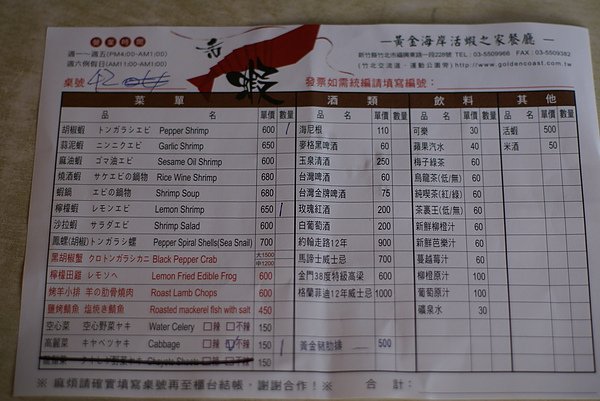 營業時間
週一～週五(PM4:00-AM1:00)
週六例假日(AM11:00-AM1:00)
蝦
─黃金海岸活蝦之家餐廳─
新竹縣竹北市福興東路一段228號 TEL : 03-5509966 FAX : 03-5509382
(竹北交流道－運動公園旁) http://www.goldencoast.com.tw
桌號
發票如需統編請填寫編號：
菜單 酒類 飲料 其他
品名 單價 數量 品名 單價 數量 品名 單價 數量 品名 單價 數量
胡椒蝦 トンガラシエビ Pepper Shrimp 600 / 海尼根 110 可樂 30 活蝦 500
蒜泥蝦 ニンニクエビ Garlic Shrimp 650 麥格黑啤酒 60 蘋果汽水 40 米酒 50
麻油蝦 ゴマ油エビ Sesame Oil Shrimp 600 玉泉清酒 250 梅子綠茶 60
燒酒蝦 サケエビの鍋物 Rice Wine Shrimp 680 台灣啤酒 60 烏龍茶(低/無) 60
蝦鍋 エビの鍋物 Shrimp Soup 680 台灣金牌啤酒 75 純喫茶(紅/綠) 60
檸檬蝦 レモンエビ Lemon Shrimp 650 / 玫瑰紅酒 200 茶裏王(低/無) 60
沙拉蝦 サラダエビ Shrimp Salad 600 白葡萄酒 200 新鮮柳橙汁 60
鳳螺(胡椒) トンガラシ螺 Pepper Spiral Shells(Sea Snail) 700 約翰走路12年 900 新鮮芭樂汁 60
黑胡椒蟹 クロトンガラシカニ Black Pepper Crab 大1500 中1200 馬諦士威士忌 700 蔓越莓汁 60
檸檬田雞 レモンソヘ Lemon Fried Edible Frog 600 金門38度特級高梁 600 柳橙原汁 100
烤羊小排 羊の肋骨燒肉 Roast Lamb Chops 600 格蘭菲迪12年威士忌 1000 葡萄原汁 100
鹽烤鯖魚 塩焼き鯖魚 Roasted mackerel fish with salt 450 礦泉水 30
空心菜 空心野菜ヤキ Water Celery □辣 □不辣 150
高麗菜 キヤベツヤキ Cabbage □辣 □不辣 150 / 黃金豬肋排 500
150
※ 麻煩請確實填寫桌號再至櫃台結帳，謝謝合作！※ 合計：